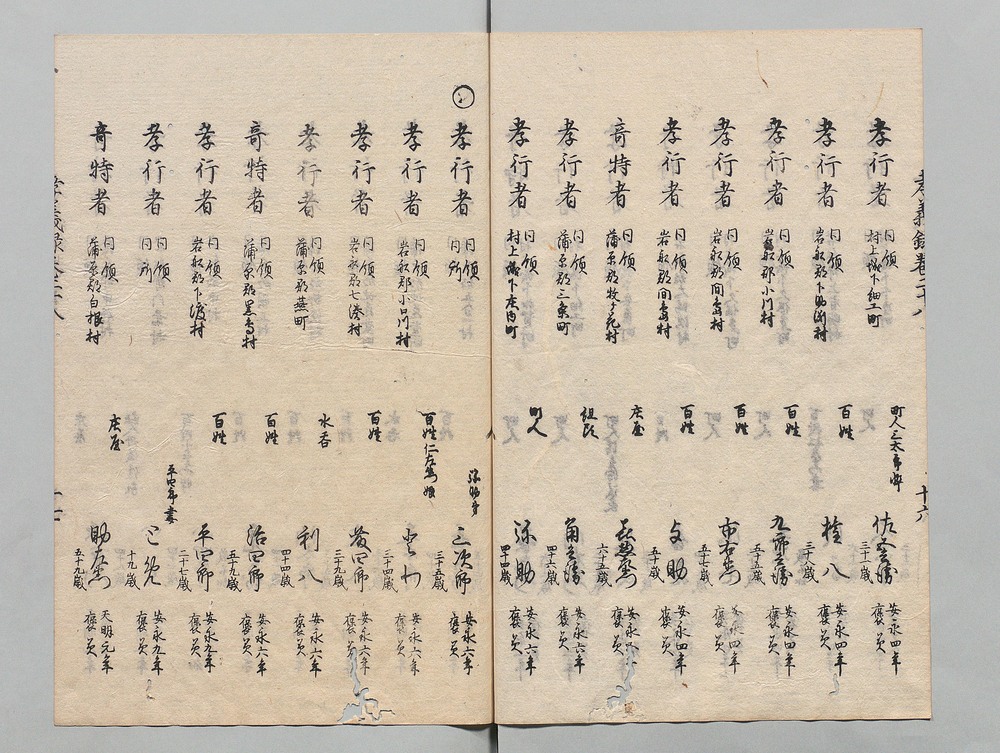 孝義録巻二十八
十六
孝行者 同領 村上城下細工町 町人三太郎忰 佐五兵衛 三十一歳 安永四年 褒美
孝行者 同領 岩船郡下 村 百姓 権八 三十八歳 安永四年 褒美
孝行者 同領 岩船郡小川村 百姓 九郎兵衛 五十五歳 安永四年 褒美
孝行者 同領 岩船郡間島村 百姓 市右衛門 五十七歳 安永四年 褒美
孝行者 同領 岩船郡間島村 百姓 与助 五十歳 安永四年 褒美
奇特者 同領 蒲原郡牧ヶ花村 庄屋 喜惣右衛門 六十五歳 安永六年 褒美
孝行者 同領 蒲原郡三条町 組頭 角兵衛 四十六歳 安永六年 褒美
孝行者 同領 村上城下庄内町 町人 弥助 四十四歳 安永六年 褒美
孝行者 同領 同所 弥助弟 三次郎 三十五歳 安永六年 褒美
孝行者 同領 岩船郡小口川村 百姓仁左衛門娘 三十四歳 安永六年 褒美
孝行者 同領 岩船郡七湊村 百姓 四郎 三十九歳 安永六年 褒美
孝行者 同領 蒲原郡燕町 水呑 利八 四十四歳 安永六年 褒美
奇特者 同領 蒲原郡黒鳥村 百姓 治四郎 五十九歳 安永六年 褒美
孝行者 同領 岩船郡下渡村 百姓 平四郎 二十一歳 安永九年 褒美
孝行者 同領 同所 平四郎妻 十九歳 安永九年 褒美
奇特者 同領 蒲原郡白根村 庄屋 助左衛門 五十九歳 天明元年 褒美
孝義録巻二十八